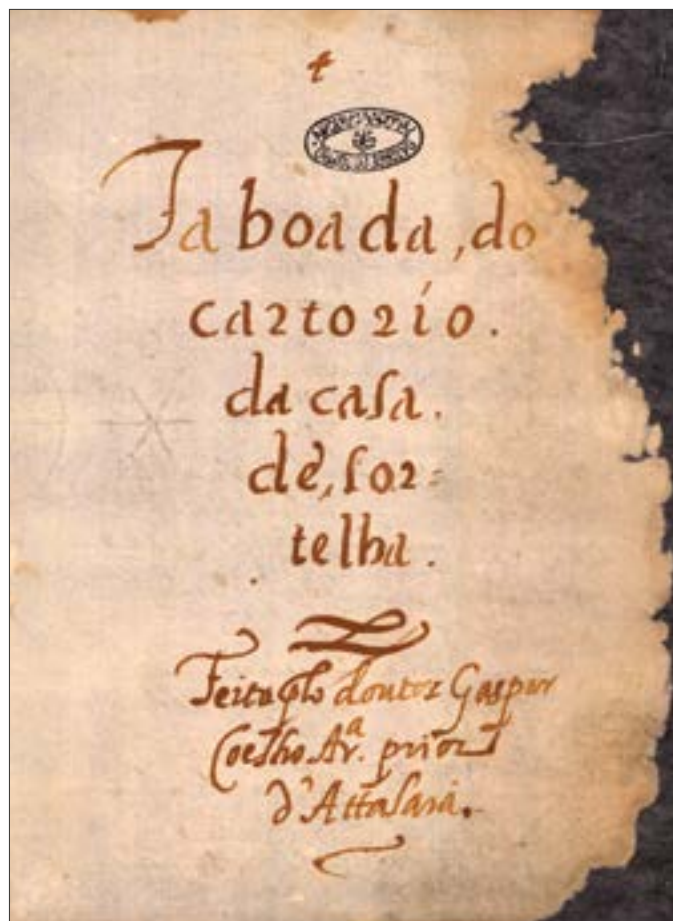 Taboada, do
cartorio.
da casa.
de, sor-
telha.
Feita pelo doutor Gaspar
Coelho Ar.ª prior
d'Attalaia.